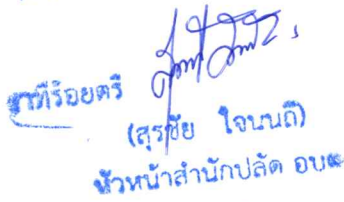 ว่าที่ร้อยตรี
(สุรชัย ใจนนถี)
หัวหน้าสำนักปลัด อบต.